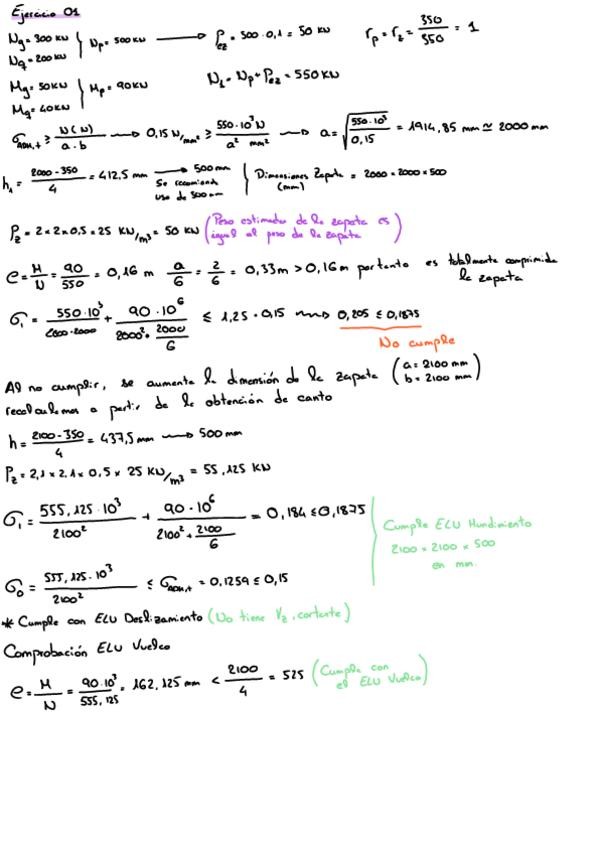 Ejercicio 01
Ng = 300 KN
Nq = 200 KN } Np = 500 KN → Pez = 500 · 0,1 = 50 KN rp = rz = 350/350 = 1
Mg = 50 KN
Mq = 40 KN } Mp = 90 KN N1 = Np + Pez = 550 KN
σADM,t ≥ N(N)/a·b → 0,15 N/mm² ≥ 550·10³ N/a² mm² → a = √(550·10³/0,15) = 1914,85 mm ≃ 2000 mm
h1 = (2000-350)/4 = 412,5 mm → 500 mm Se recomienda uso de 500 mm { Dimensiones Zapata = 2000 × 2000 × 500 (mm)
Pz = 2 × 2 × 0,5 × 25 KN/m³ = 50 KN (Peso estimado de la zapata es igual al peso de la zapata)
e = M/N = 90/550 = 0,16 m a/6 = 2/6 = 0,33 m > 0,16 m por tanto es totalmente comprimida la zapata
σ1 = 550·10³/2000·2000 + 90·10⁶/(2000² · 2000/6) ≤ 1,25 · 0,15 → 0,205 ≤ 0,1875
No cumple
Al no cumplir, se aumenta la dimensión de la zapata (a = 2100 mm b = 2100 mm)
recalculamos a partir de la obtención de canto
h = (2100-350)/4 = 437,5 mm → 500 mm
Pz = 2,1 × 2,1 × 0,5 × 25 KN/m³ = 55,125 KN
σ1 = 555,125·10³/2100² + 90·10⁶/(2100² · 2100/6) = 0,184 ≤ 0,1875
Cumple ELU Hundimiento
2100 × 2100 × 500
en mm.
σ0 = 555,125·10³/2100² ≤ σADM,t = 0,1259 ≤ 0,15
* Cumple con ELU Deslizamiento (No tiene Vz, cortante)
Comprobación ELU Vuelco
e = M/N = 90·10³/555,125 = 162,125 mm < 2100/4 = 525 (Cumple con el ELU Vuelco)